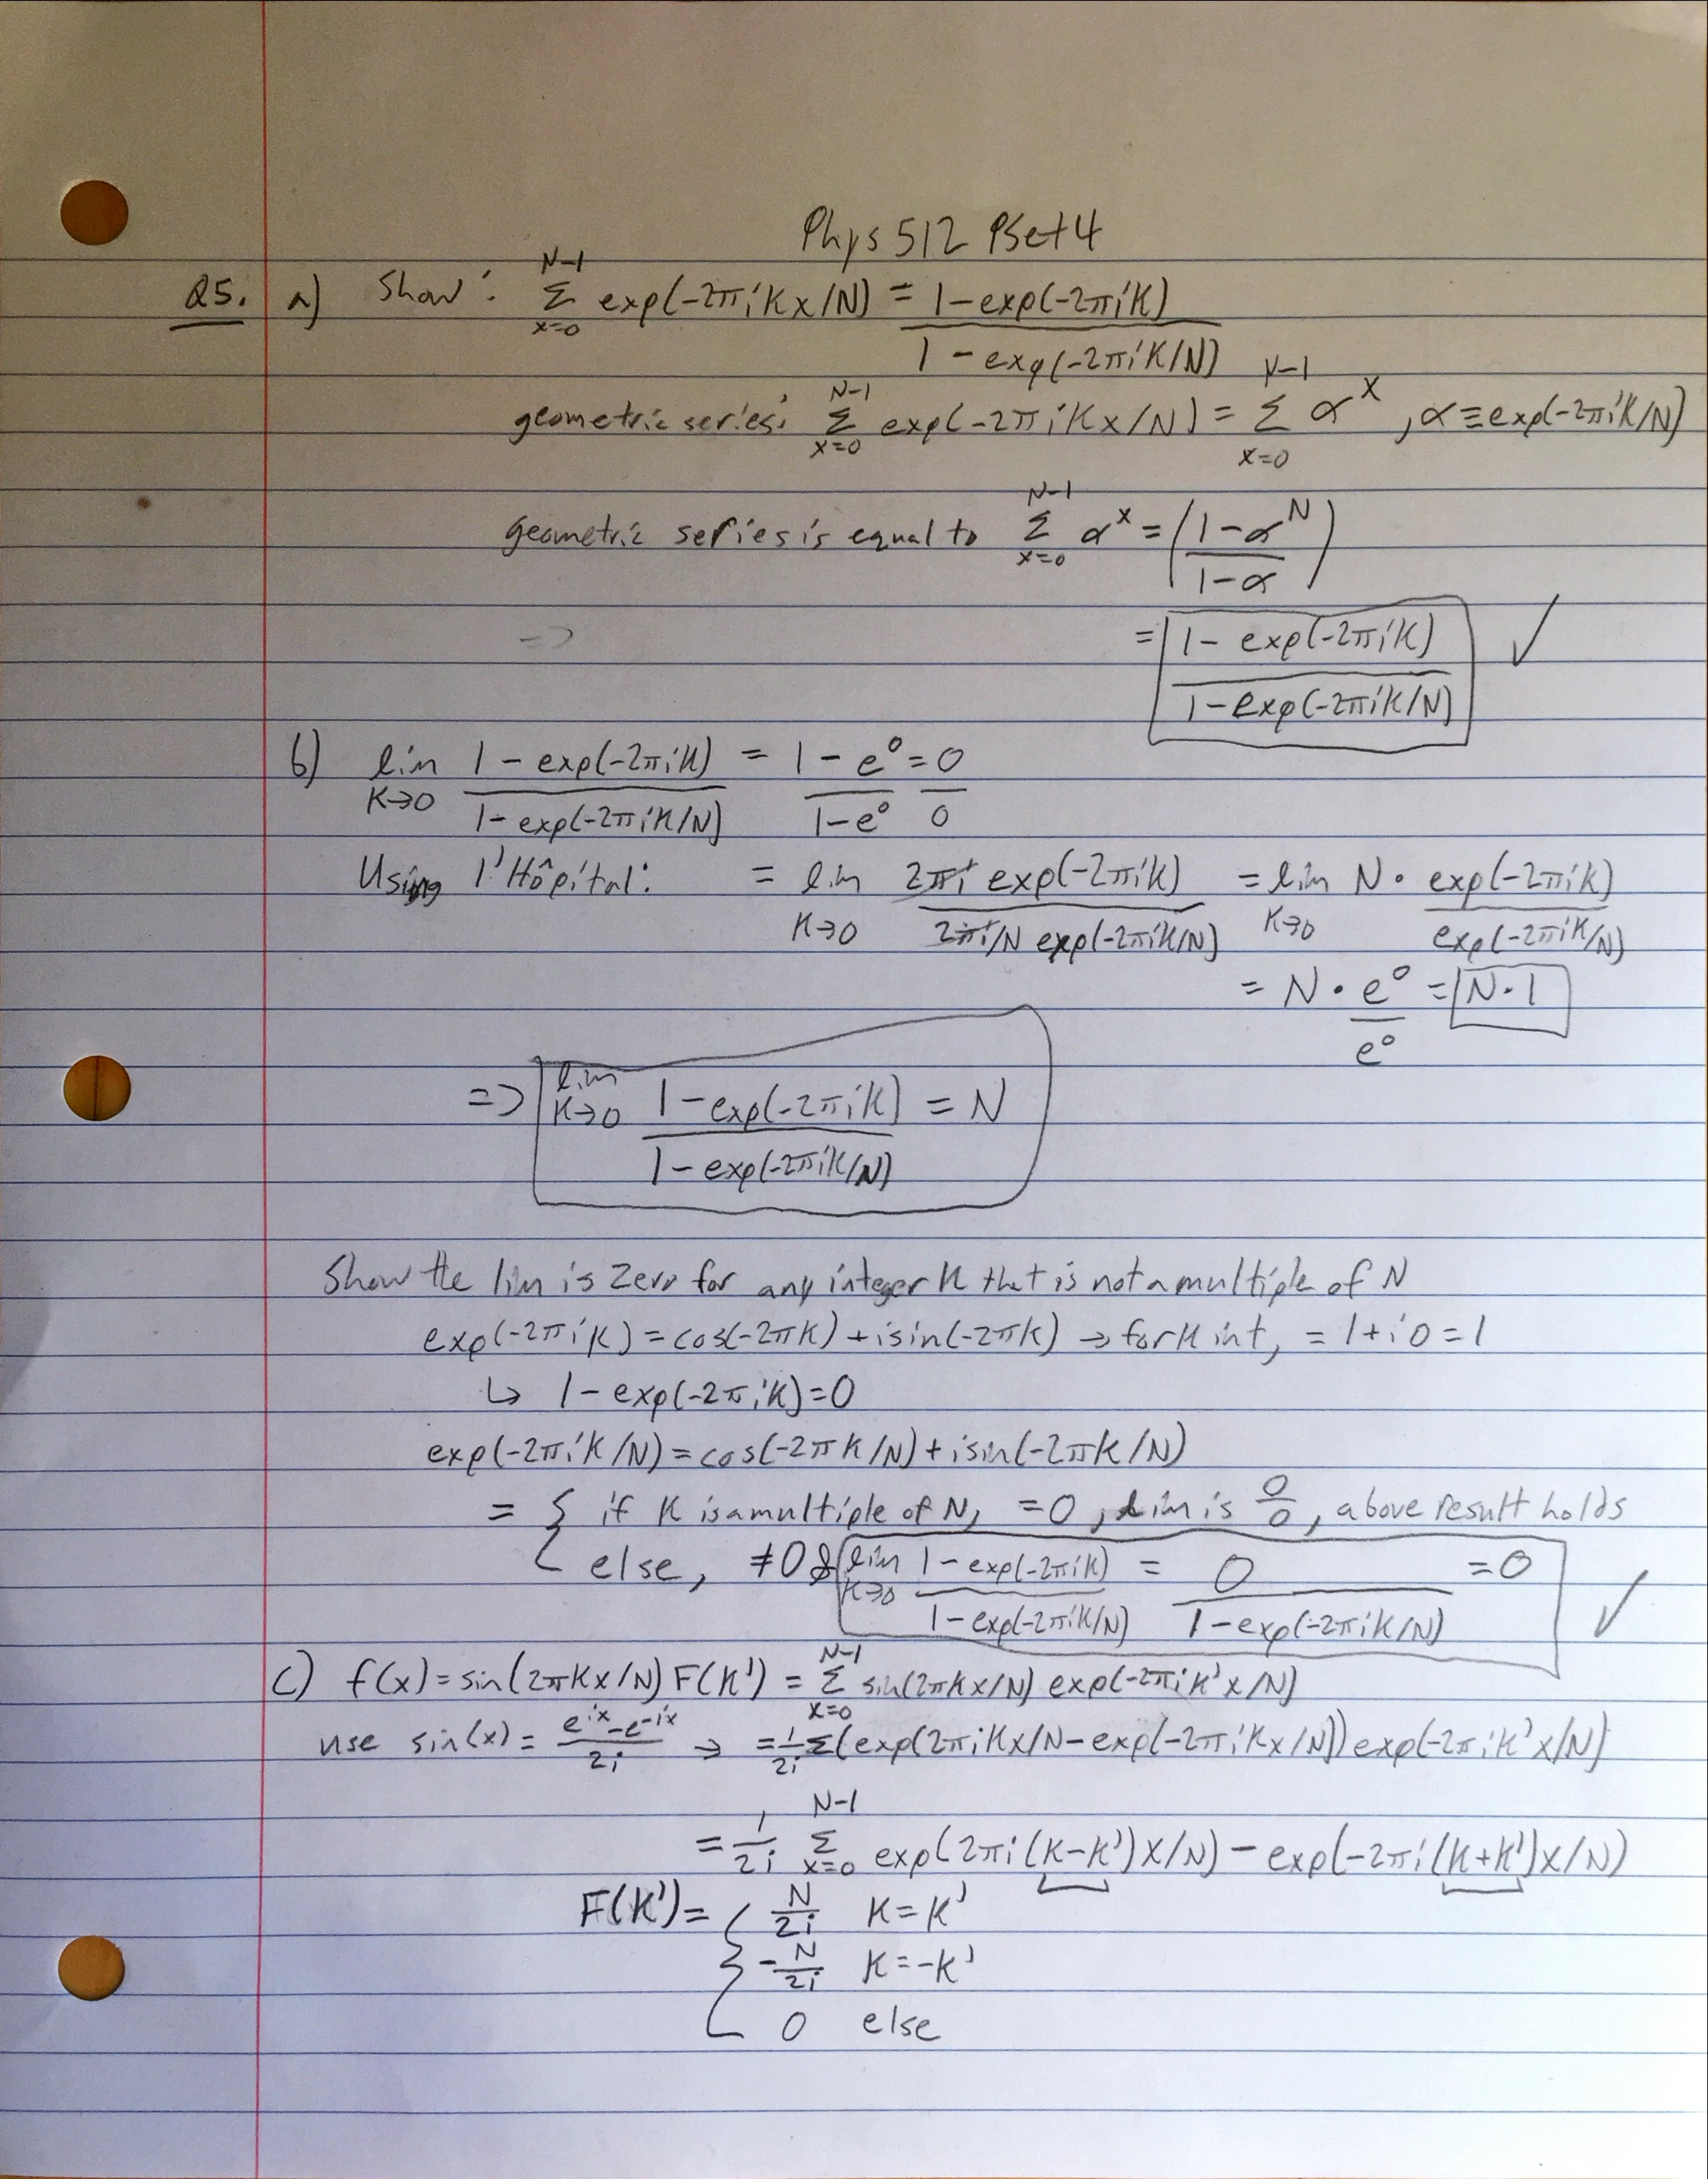 Phys 512 PSet 4
Q5. a) Show: Σ_{x=0}^{N-1} exp(-2πikx/N) = (1-exp(-2πik))/(1-exp(-2πik/N))
geometric series: Σ_{x=0}^{N-1} exp(-2πikx/N) = Σ_{x=0}^{N-1} α^x , α≡exp(-2πik/N)
geometric series is equal to Σ_{x=0}^{N-1} α^x = ((1-α^N)/(1-α))
=> = (1-exp(-2πik))/(1-exp(-2πik/N)) ✓
b) lim_{k→0} (1-exp(-2πik))/(1-exp(-2πik/N)) = (1-e^0)/(1-e^0) = 0/0
Using l'Hôpital: = lim_{k→0} (2πi exp(-2πik))/(2πi/N exp(-2πik/N)) = lim_{k→0} N · exp(-2πik)/exp(-2πik/N)
= N · e^0/e^0 = N·1
=> lim_{k→0} (1-exp(-2πik))/(1-exp(-2πik/N)) = N
Show the lim is zero for any integer k that is not a multiple of N
exp(-2πik) = cos(-2πk) + isin(-2πk) → for k int, = 1+i0 = 1
↳ 1-exp(-2πik)=0
exp(-2πik/N) = cos(-2πk/N) + isin(-2πk/N)
= { if k is a multiple of N, =0, lim is 0/0, above result holds
else, ≠0 & lim_{k→0} (1-exp(-2πik))/(1-exp(-2πik/N)) = 0/(1-exp(-2πik/N)) = 0 ✓
c) f(x) = sin(2πkx/N) F(k') = Σ_{x=0}^{N-1} sin(2πkx/N) exp(-2πik'x/N)
use sin(x) = (e^{ix}-e^{-ix})/2i → = 1/2i Σ(exp(2πikx/N-exp(-2πikx/N)) exp(-2πik'x/N)
= 1/2i Σ_{x=0}^{N-1} exp(2πi(k-k')x/N) - exp(-2πi(k+k')x/N)
F(k') = { N/2i k=k'
-N/2i k=-k'
0 else